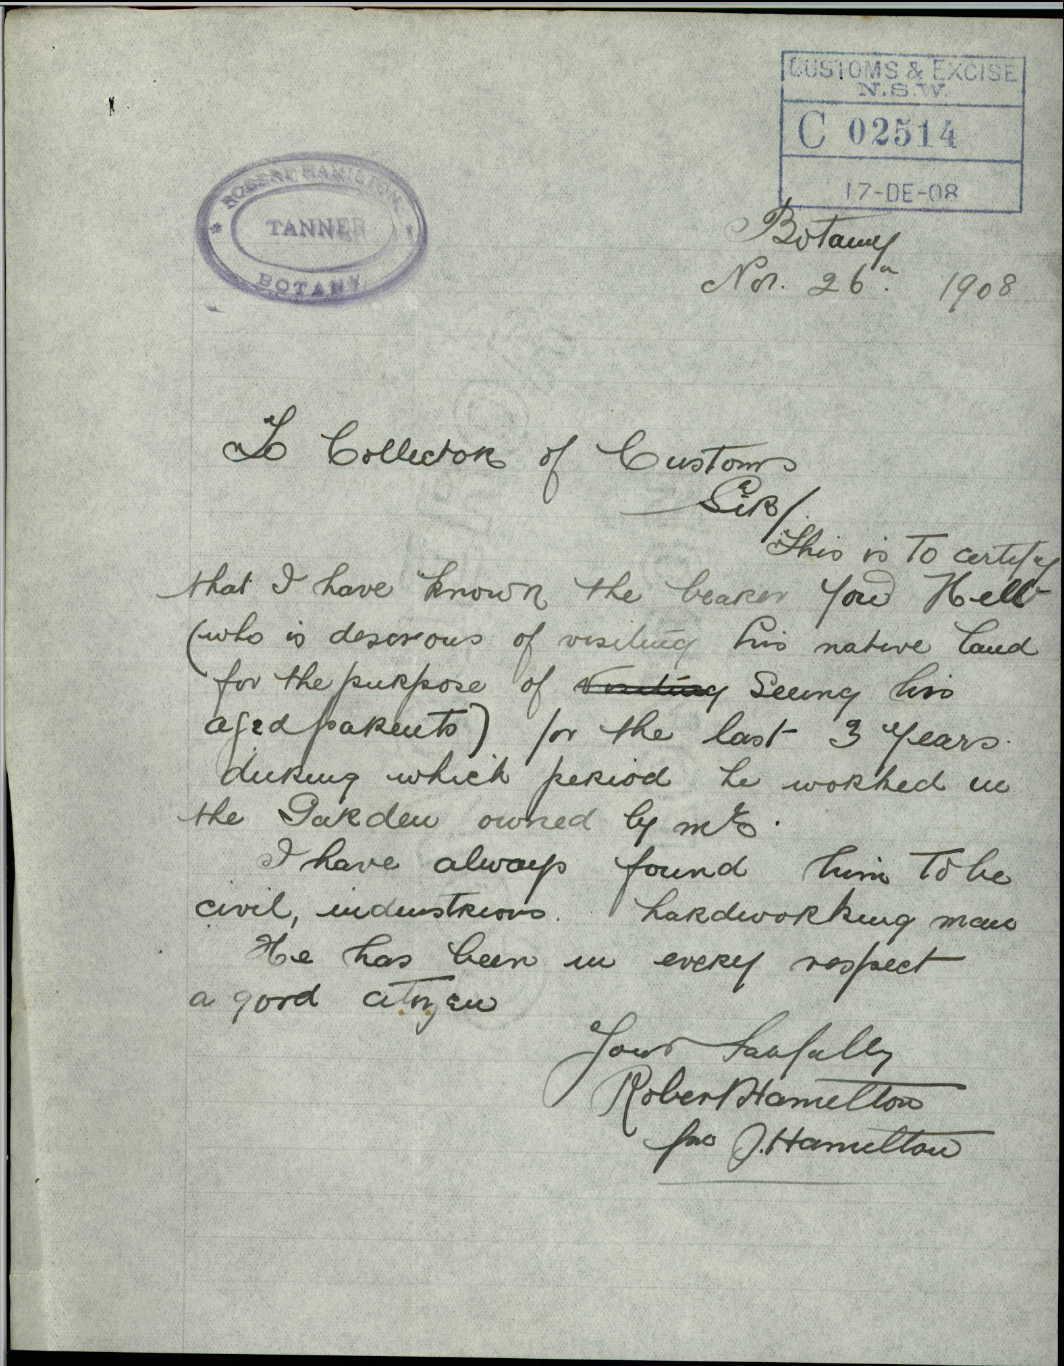 CUSTOMS & EXCISE
N.S.W.
C 02514
17-DE-08
ROBERT HAMILTON
TANNER
BOTANY
Botany
Nov. 26th 1908
To Collector of Customs
Sir/
This is to certify
that I have known the bearer You Hell
(who is deserous of visiting his native land
for the purpose of visiting Seeing his
aged parents) for the last 3 years.
during which period he worked in
the Garden owned by me.
I have always found him to be
civil, industrious. hardworking man
He has been in every respect
a good citizen
Yours Faifully
Robert Hamilton
per J. Hamilton